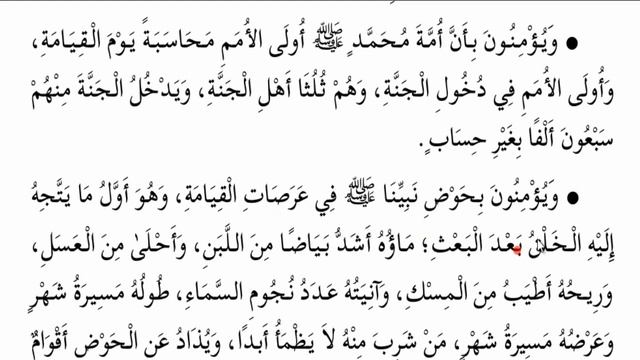 • وَيُؤْمِنُونَ بِأَنَّ أُمَّةَ مُحَمَّدٍ ﷺ أُولَى الأُمَمِ مَحَاسَبَةً يَوْمَ الْقِيَامَةِ،
وَأُولَى الأُمَمِ فِي دُخُولِ الْجَنَّةِ، وَهُمْ ثُلُثَا أَهْلِ الْجَنَّةِ، وَيَدْخُلُ الْجَنَّةَ مِنْهُمْ
سَبْعُونَ أَلْفًا بِغَيْرِ حِسَابٍ.
• وَيُؤْمِنُونَ بِحَوْضِ نَبِيِّنَا ﷺ فِي عَرَصَاتِ الْقِيَامَةِ، وَهُوَ أَوَّلُ مَا يَتَّجِهُ
إِلَيْهِ الْخَلْقُ بَعْدَ الْبَعْثِ؛ مَاؤُهُ أَشَدُّ بَيَاضًا مِنَ اللَّبَنِ، وَأَحْلَى مِنَ الْعَسَلِ،
وَرِيحُهُ أَطْيَبُ مِنَ الْمِسْكِ، وَآنِيَتُهُ عَدَدُ نُجُومِ السَّمَاءِ، طُولُهُ مَسِيرَةُ شَهْرٍ
وَعَرْضُهُ مَسِيرَةُ شَهْرٍ، مَنْ شَرِبَ مِنْهُ لَا يَظْمَأُ أَبَدًا، وَيُذَادُ عَنِ الْحَوْضِ أَقْوَامٌ